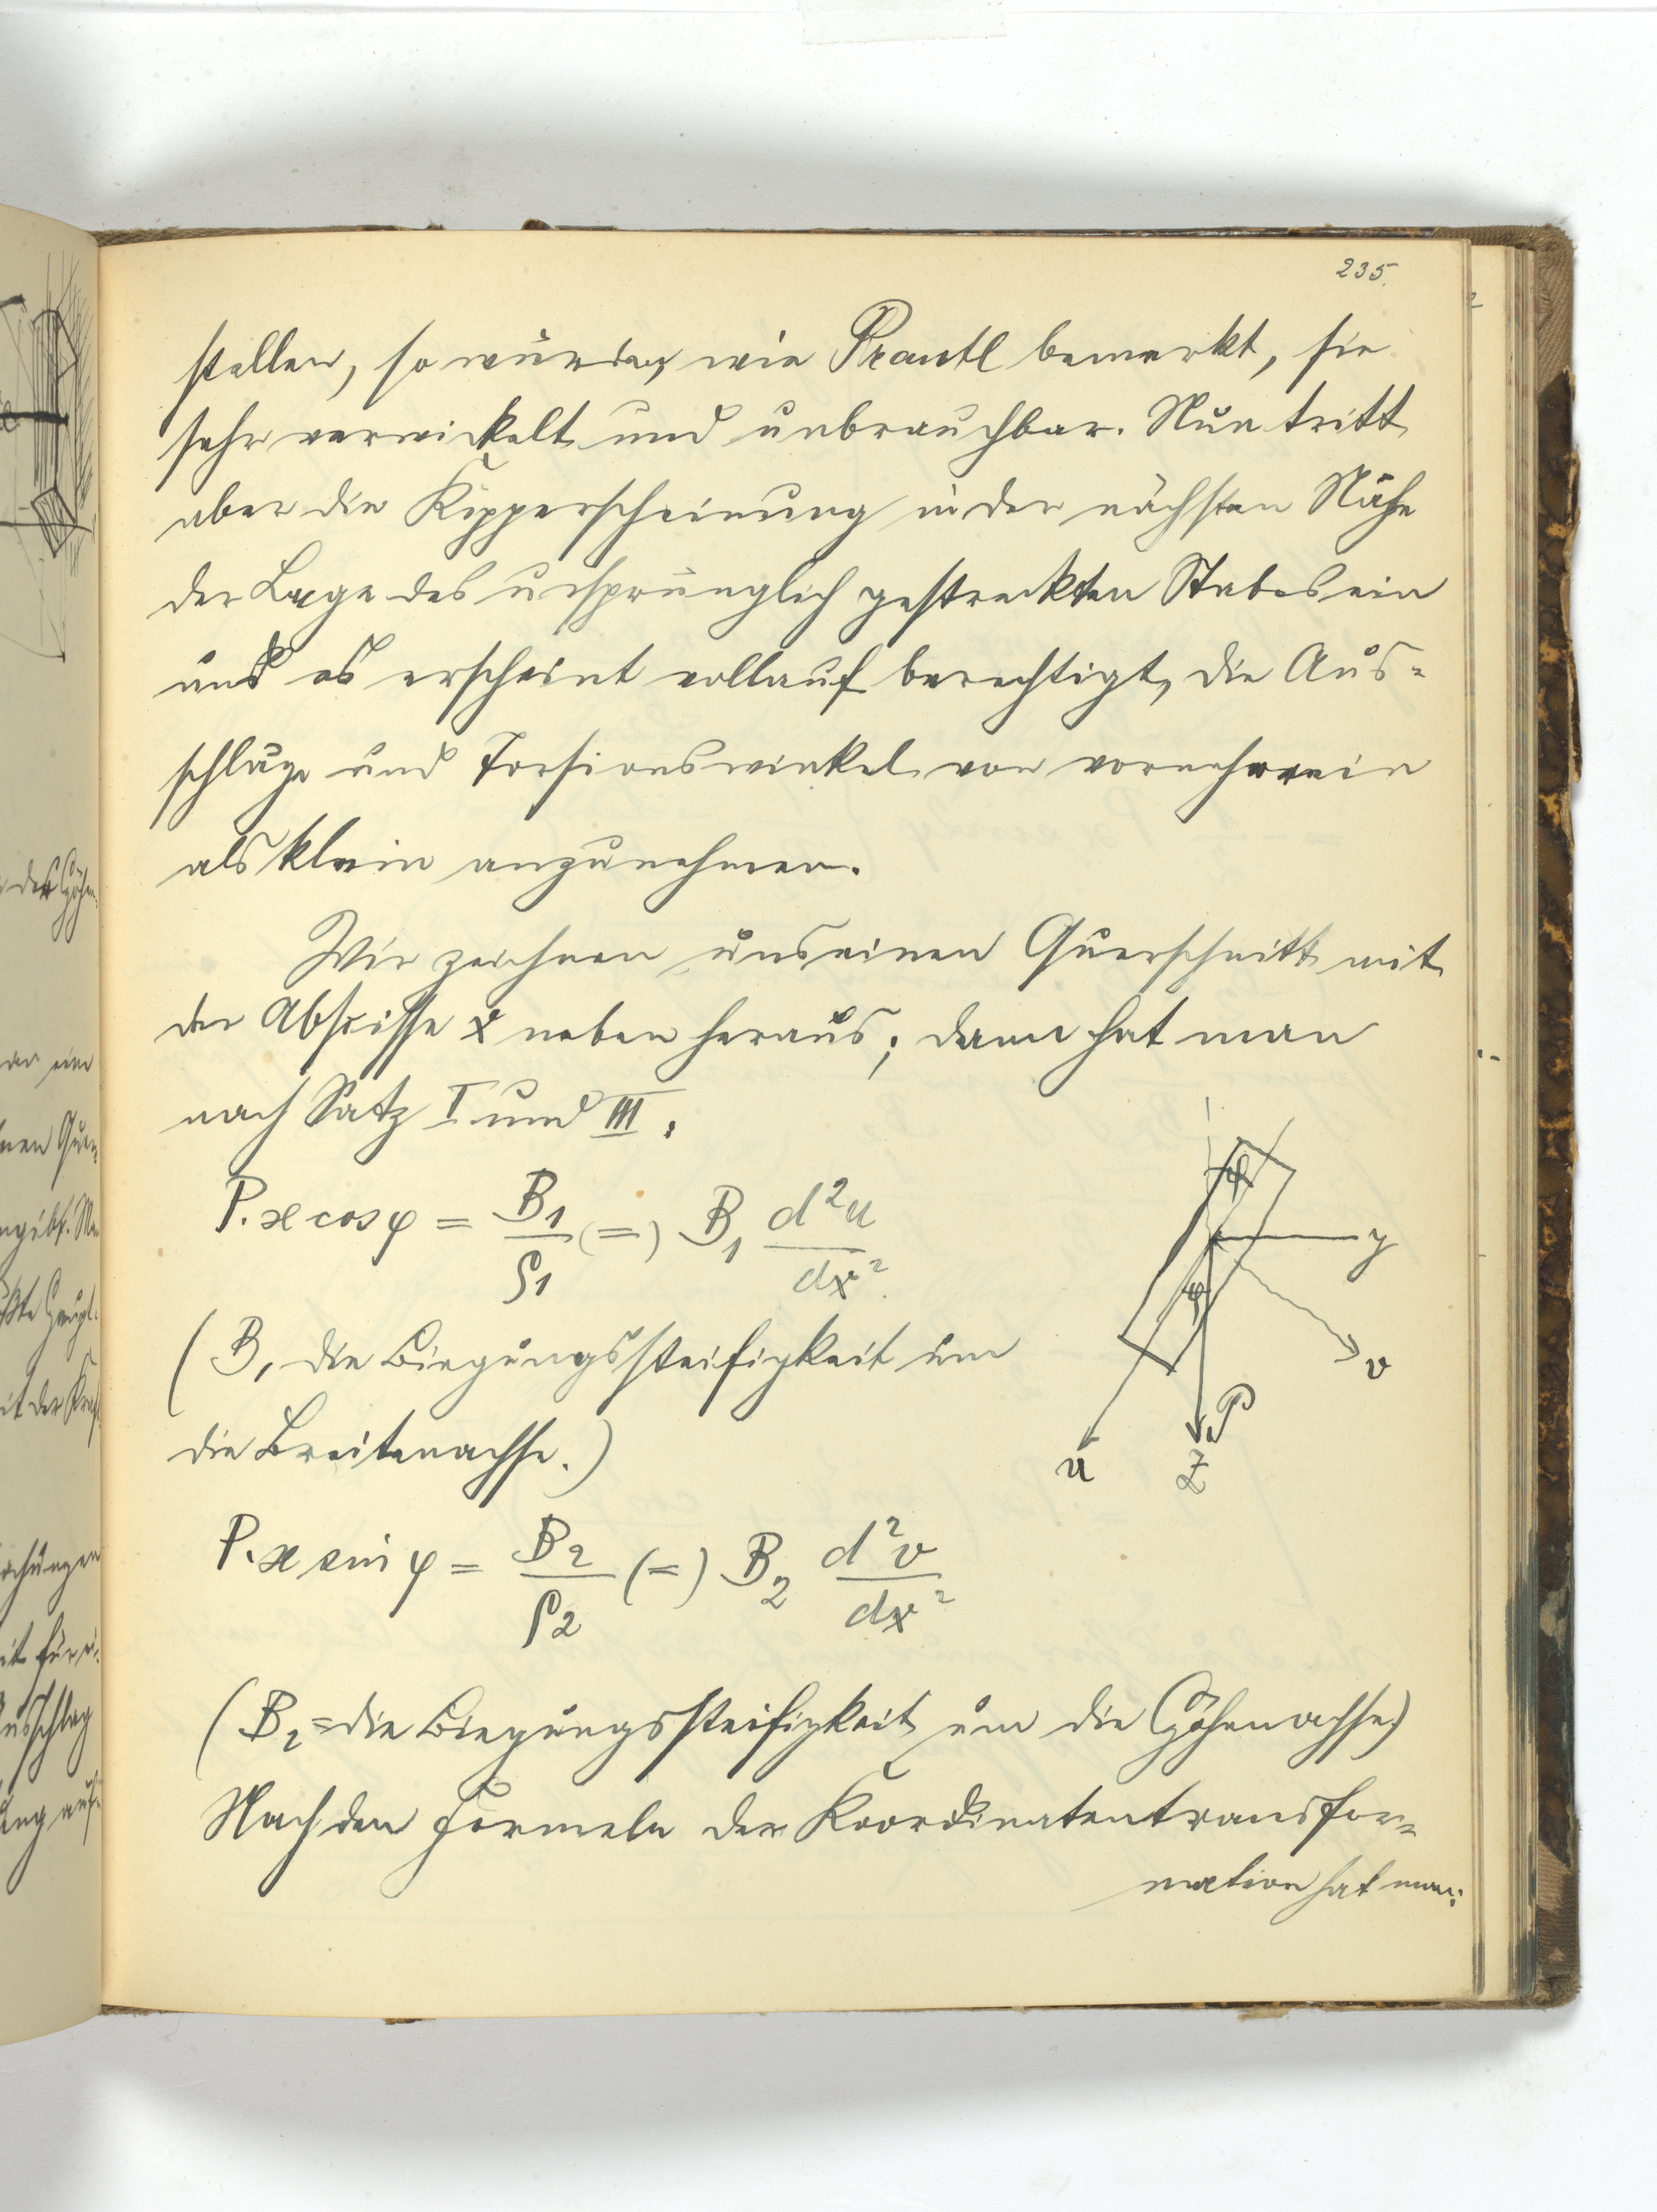 235.
stellen, so würden, wie Prantl bemerkt, sie
sehr verwickelt und unbrauchbar. Nun tritt
aber die Kipperscheinung in der nächsten Nähe
der Lage des ursprünglich gestreckten Stabes ein
und es erscheint vollauf berechtigt, die Aus-
schläge und Torsionswinkel von vorneherein
als klein anzunehmen.
Wir zeichnen uns einen Querschnitt mit
der Abscisse x neben heraus; dann hat man
nach Satz I und III:
P. x cos φ = B1/ρ1 (=) B1 d²u/dx²
φ
y
φ
v
(B1 die Biegungssteifigkeit um
P
die Breitenachse.)
u
Z
P. x sin φ = B2/ρ2 (=) B2 d²v/dx²
(B2 = die Biegungssteifigkeit um die Höhenachse)
Nach den Formeln der Koordinatentransfor-
mation hat man: